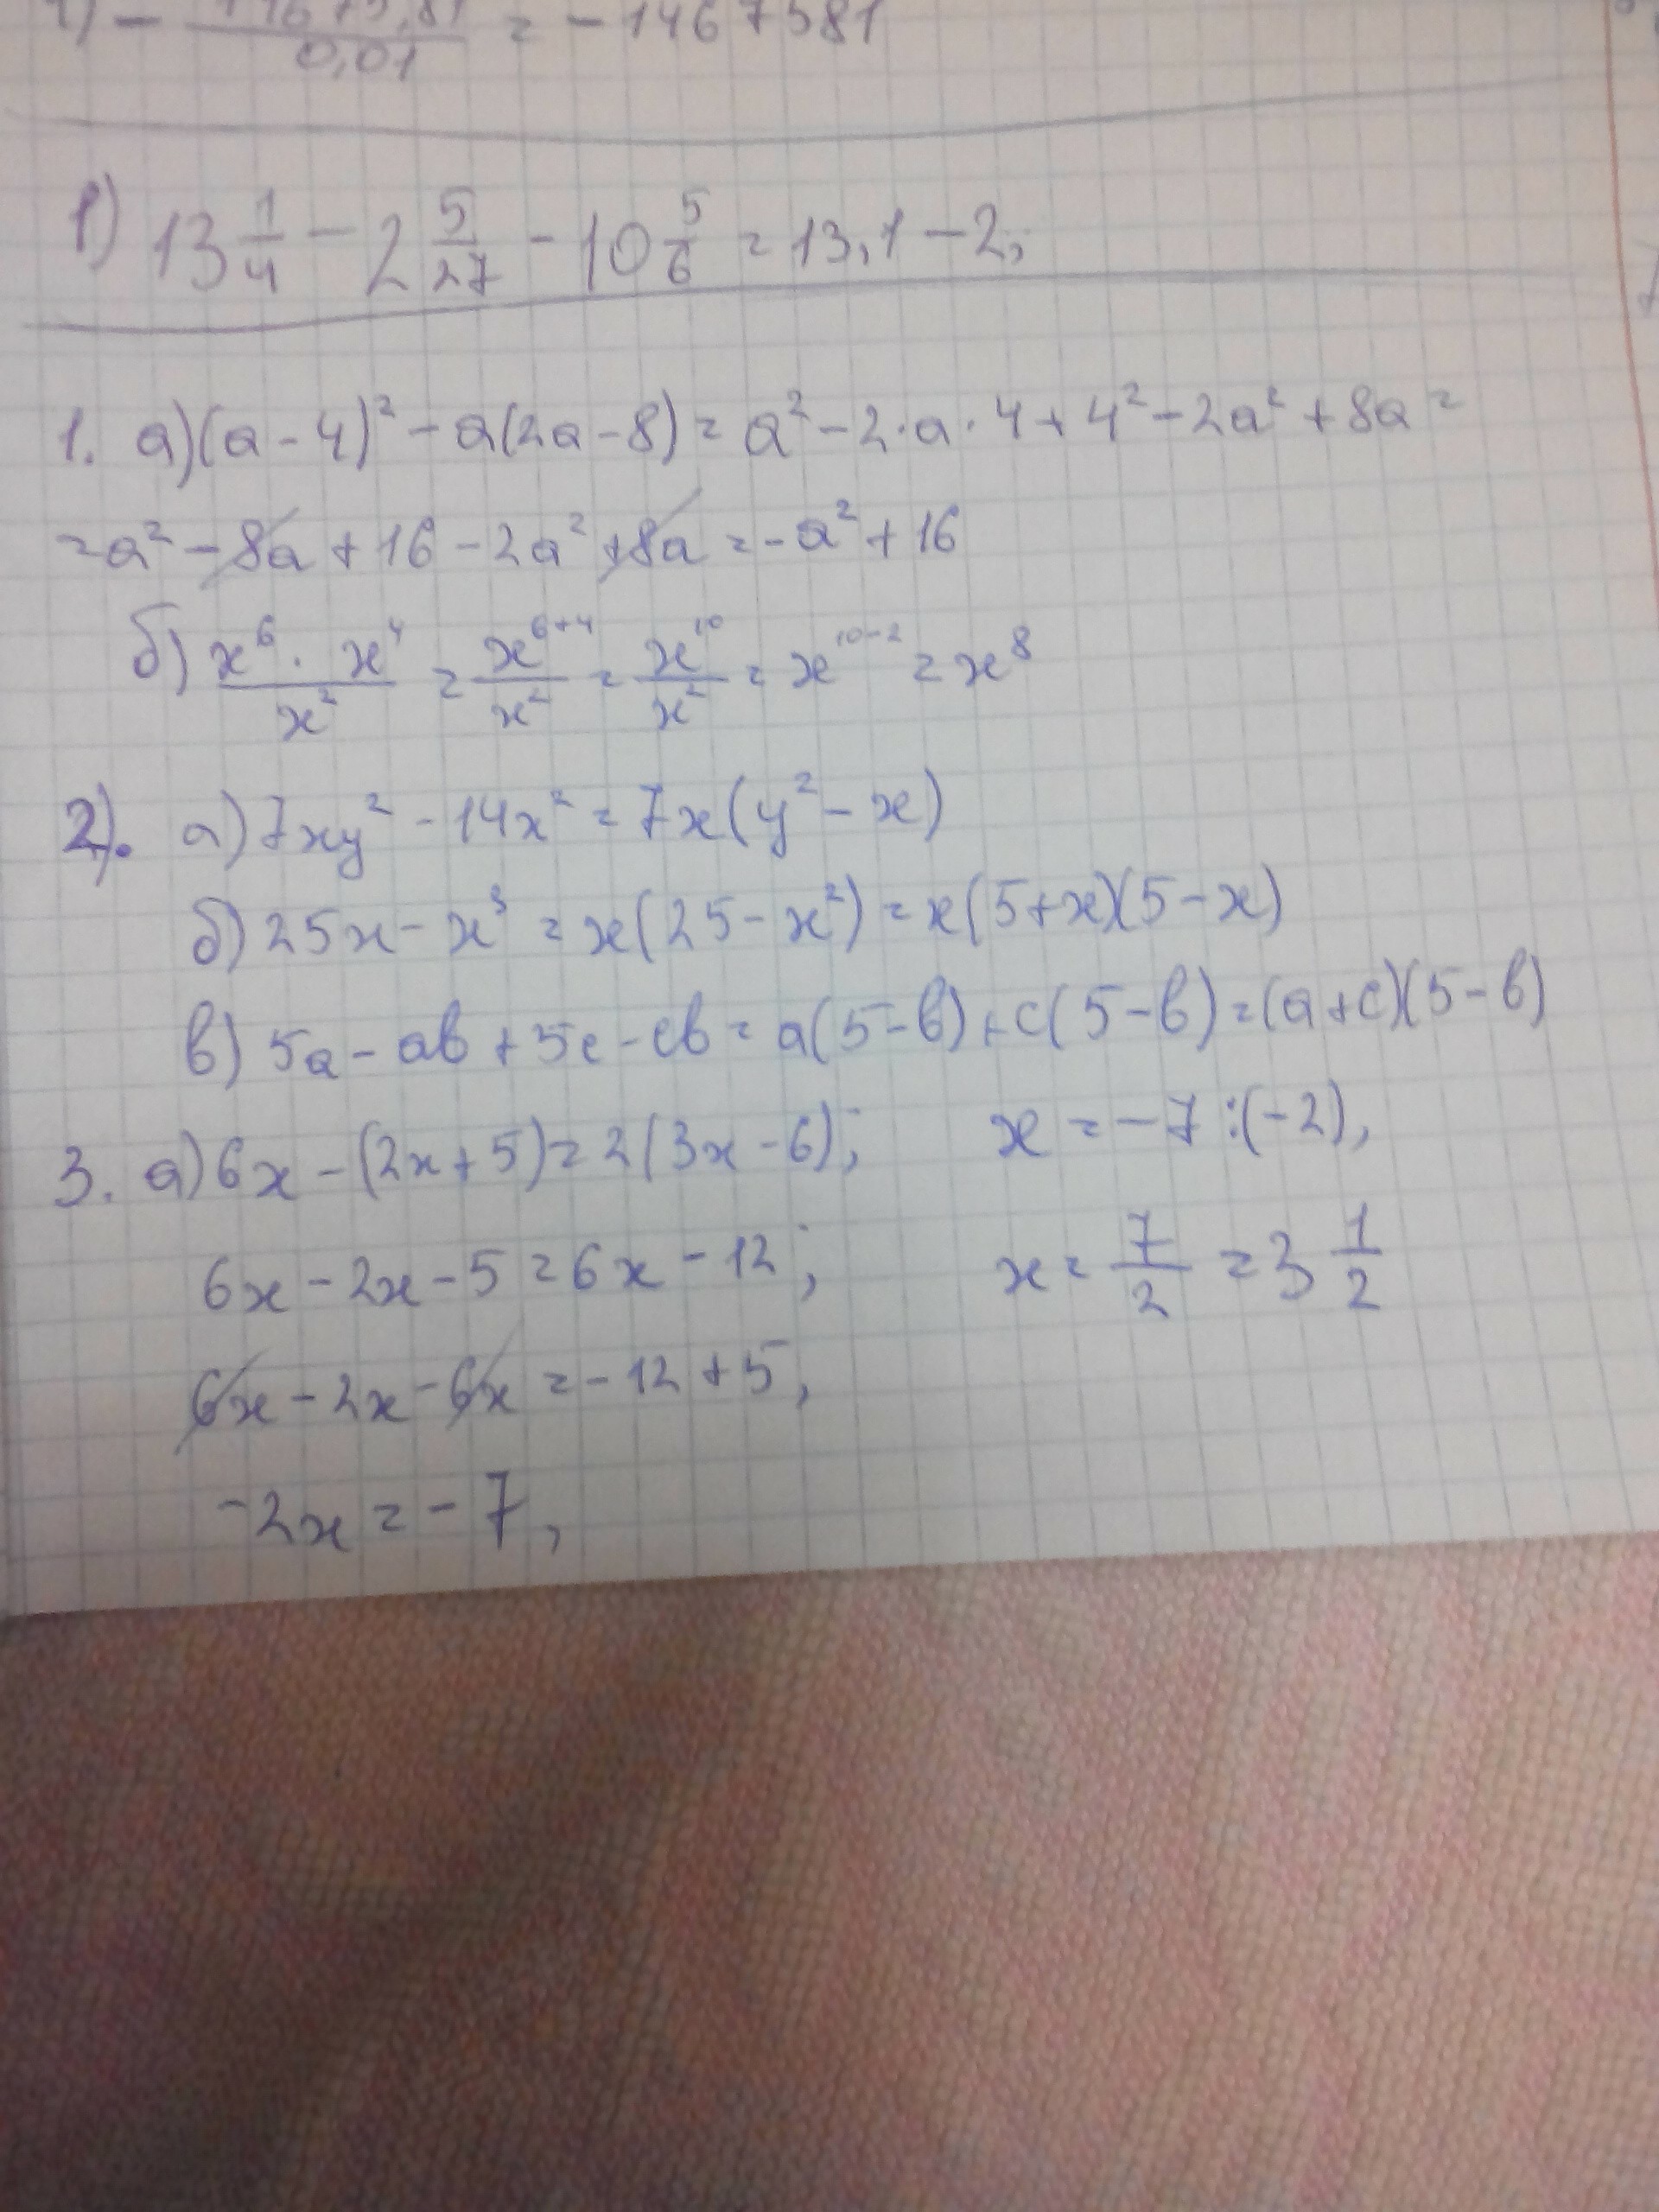 1) - 14675,81/0,01 = -1467581
1) 13 1/4 - 2 5/27 - 10 5/6 = 13,1 - 2,
1. а) (a - 4)² - a(2a - 8) = a² - 2·a·4 + 4² - 2a² + 8a =
= a² - 8a + 16 - 2a² + 8a = -a² + 16
б) x⁶ · x⁴/x² = x⁶⁺⁴/x² = x¹⁰/x² = x¹⁰⁻² = x⁸
2). а) 7xy² - 14x² = 7x(y² - x)
б) 25x - x³ = x(25 - x²) = x(5+x)(5-x)
в) 5a - aв + 5c - cв = a(5-в) + c(5-в) = (a+c)(5-в)
3. а) 6x - (2x+5) = 2(3x - 6);
6x - 2x - 5 = 6x - 12;
6x - 2x - 6x = -12 + 5,
-2x = -7,
x = -7 : (-2),
x = 7/2 = 3 1/2